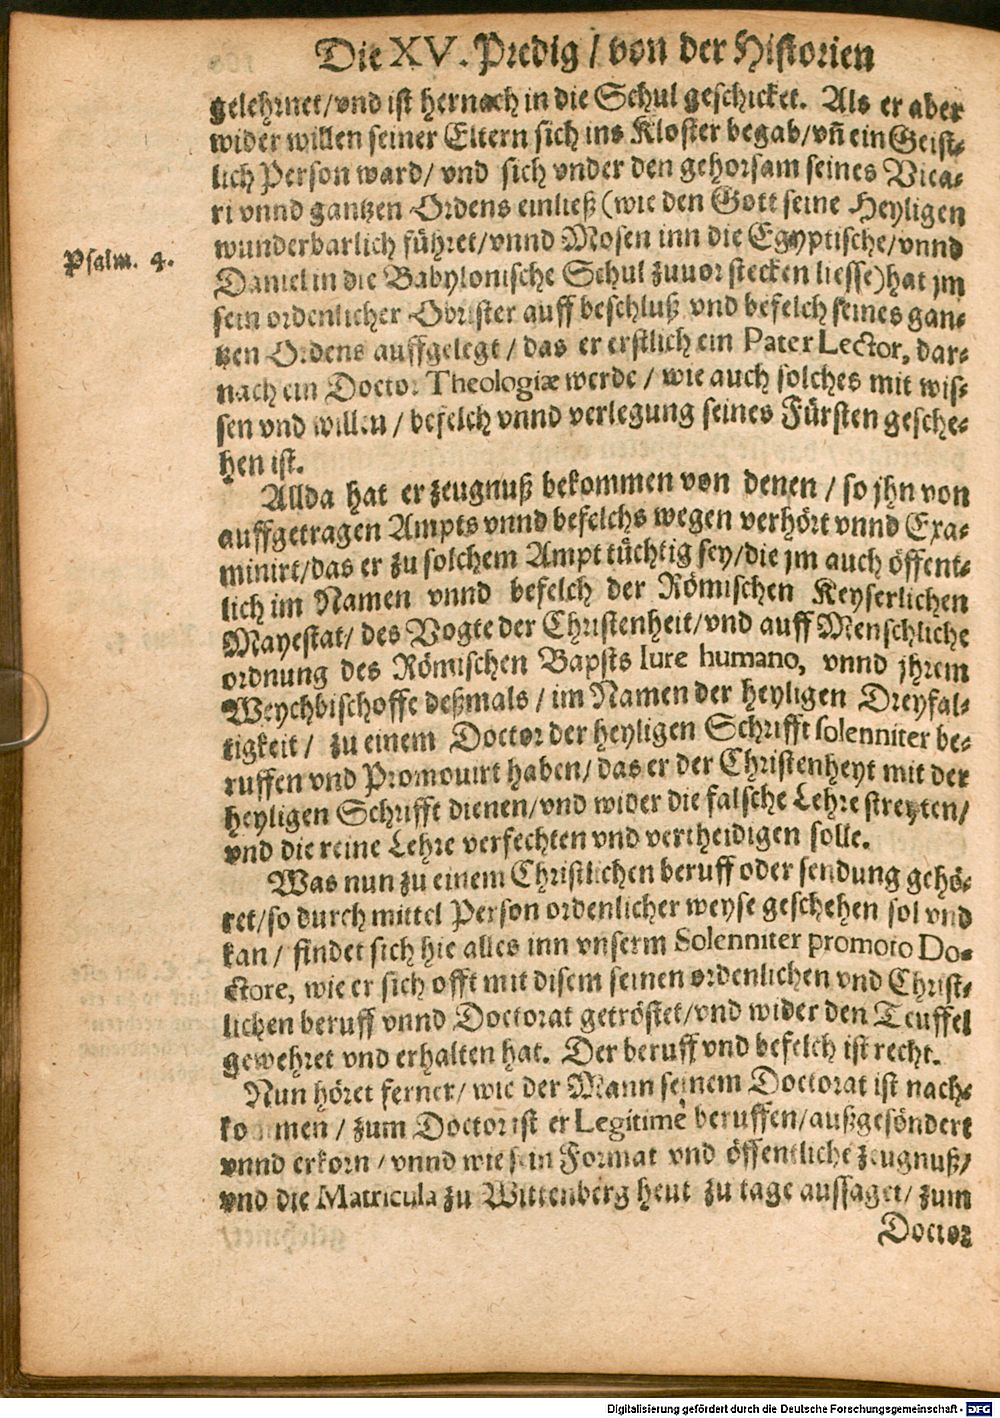 Die XV. Predig / von der Historien
gelehrnet/vnd ist hernach in die Schul geschicket. Als er aber
wider willen seiner Eltern sich ins Kloster begab/vñ ein Geist-
lich Person ward/ vnd sich vnder den gehorsam seines Vica-
ri vnnd gantzen Ordens einließ (wie den Gott seine Heyligen
wunderbarlich führet/vnnd Mosen inn die Egyptische/vnnd
Psalm. 4.
Daniel in die Babylonische Schul zuuor stecken liesse) hat jm
sein ordenlicher Obrister auff beschluß vnd befelch seines gan-
tzen Ordens auffgelegt / das er erstlich ein Pater Lector, dar-
nach ein Doctor Theologiæ werde / wie auch solches mit wis-
sen vnd willen / befelch vnnd verlegung seines Fürsten gesche-
hen ist.
Allda hat er zeugnuß bekommen von denen / so jhn von
auffgetragen Ampts vnnd befelchs wegen verhört vnnd Exa-
minirt/das er zu solchem Ampt tüchtig sey/die jm auch öffent-
lich im Namen vnnd befelch der Römischen Keyserlichen
Mayestat/ des Vogte der Christenheit/vnd auff Menschliche
ordnung des Römischen Bapsts Iure humano, vnnd jhrem
Weychbischoffe deßmals / im Namen der heyligen Dreyfal-
tigkeit / zu einem Doctor der heyligen Schrifft solenniter be-
ruffen vnd Promouirt haben/ das er der Christenheyt mit der
heyligen Schrifft dienen/vnd wider die falsche Lehre streyten/
vnd die reine Lehre verfechten vnd vertheidigen solle.
Was nun zu einem Christlichen beruff oder sendung gehö-
ret/so durch mittel Person ordenlicher weyse geschehen sol vnd
kan / findet sich hie alles inn vnserm Solenniter promoto Do-
ctore, wie er sich offt mit disem seinen ordenlichen vnd Christ-
lichen beruff vnnd Doctorat getröstet/vnd wider den Teuffel
gewehret vnd erhalten hat. Der beruff vnd befelch ist recht.
Nun höret ferner/ wie der Mann seinem Doctorat ist nach-
kommen / zum Doctor ist er Legitimè beruffen/außgesöndert
vnnd erkorn / vnnd wie sein Format vnd öffentliche zeugnuß/
vnd die Matricula zu Wittenberg heut zu tage aussaget/ zum
Doctor
Digitalisierung gefördert durch die Deutsche Forschungsgemeinschaft - DFG